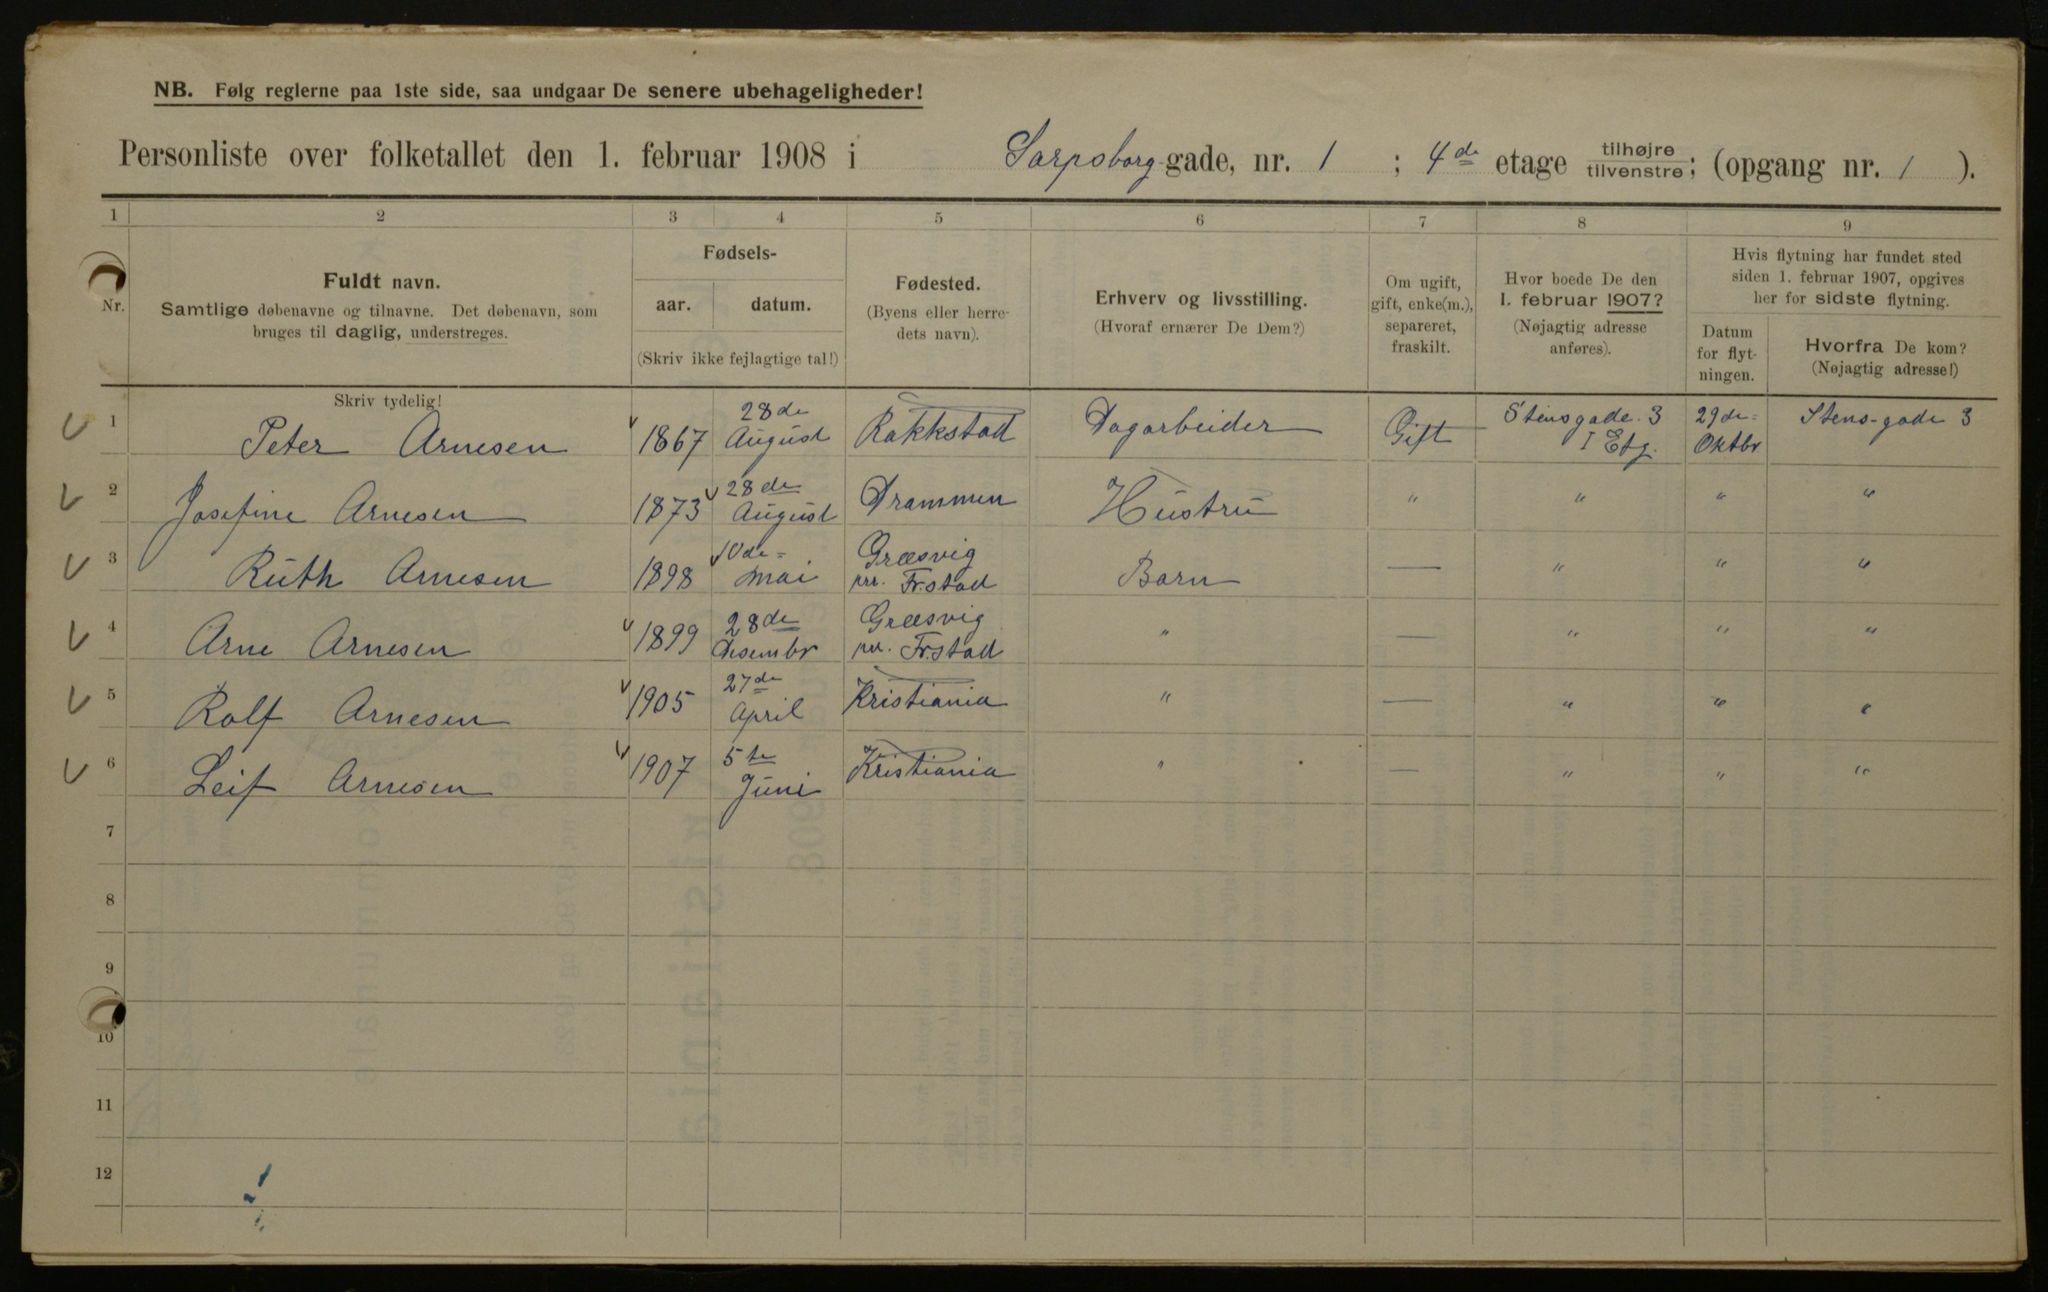 NB. Følg reglerne paa 1ste side, saa undgaar De senere ubehageligheder!
Personliste over folketallet den 1. februar 1908 i Sarpsborg-gade, nr. 1 ; 4de etage tilhøjre/tilvenstre; (opgang nr. 1 ).
1 2 3 4 5 6 7 8 9
Nr.
Fuldt navn.
Samtlige døbenavne og tilnavne. Det døbenavn, som
bruges til daglig, understreges.
Fødsels-
aar. datum.
(Skriv ikke fejlagtige tal!)
Fødested.
(Byens eller herre-
dets navn).
Erhverv og livsstilling.
(Hvoraf ernærer De Dem?)
Om ugift,
gift, enke(m.),
separeret,
fraskilt.
Hvor boede De den
1. februar 1907?
(Nøjagtig adresse
anføres).
Hvis flytning har fundet sted
siden 1. februar 1907, opgives
her for sidste flytning.
Datum
for flyt-
ningen.
Hvorfra De kom?
(Nøjagtig adresse!)
Skriv tydelig!
1 Peter Arnesen 1867 28de August Rakkstad Dagarbeider Gift Stensgade 3 I Etg. 29de Oktbr Stens-gade 3
2 Josefine Arnesen 1873 28de August Drammen Hustru " " " "
3 Ruth Arnesen 1898 10de Mai Græsvig pr. Fr.stad Barn — " " "
4 Arne Arnesen 1899 28de Desembr Græsvig pr. Fr.stad " — " " "
5 Rolf Arnesen 1905 27de April Kristiania " — " " "
6 Leif Arnesen 1907 5te Juni Kristiania " — " " "
7
8
9
10
11
12